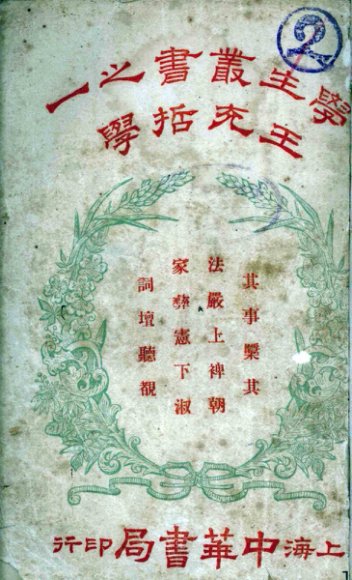 2
學生叢書之一
王充哲學
其事槩其
法嚴上裨朝
家彝憲下淑
詞壇聽觀
上海中華書局印行